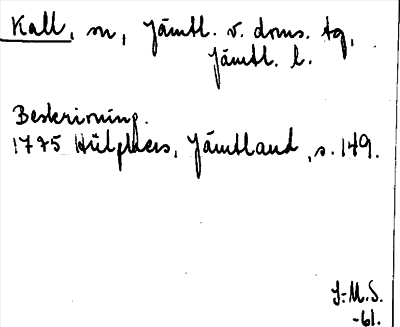 Kall, sn, Jämtl. v. doms. tg,
Jämtl. l.
Beskrivning.
1775 Hülphers, Jämtland, s. 149.
J-M.S.
-61.